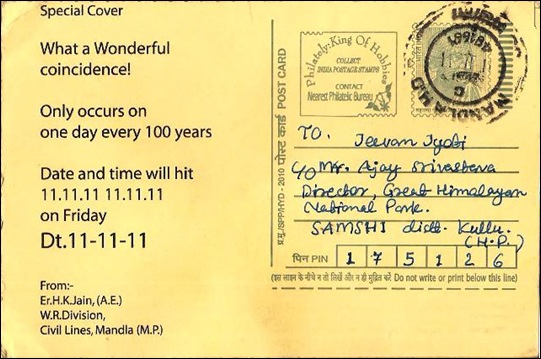 Special Cover
What a Wonderful
coincidence!
Only occurs on
one day every 100 years
Date and time will hit
11.11.11 11.11.11
on Friday
Dt.11-11-11
From:-
Er.H.K.Jain, (A.E.)
W.R.Division,
Civil Lines, Mandla (M.P.)
Philately: King Of Hobbies
COLLECT
INDIA POSTAGE STAMPS
CONTACT
Nearest Philatelic Bureau
MANDLA H.O
प्र.मु./SPP/HYD - 2010 पोस्ट कार्ड POST CARD
TO.
Jeevan Jyoti
C/O Mr. Ajay Srivasteva
Director, Great Himalayan
National Park.
SAMSHI distt. Kullu.
(H.P.)
पिन PIN 1 7 5 1 2 6
(इस लाइन के नीचे न तो लिखें और न ही मुद्रित करें Do not write or print below this line)